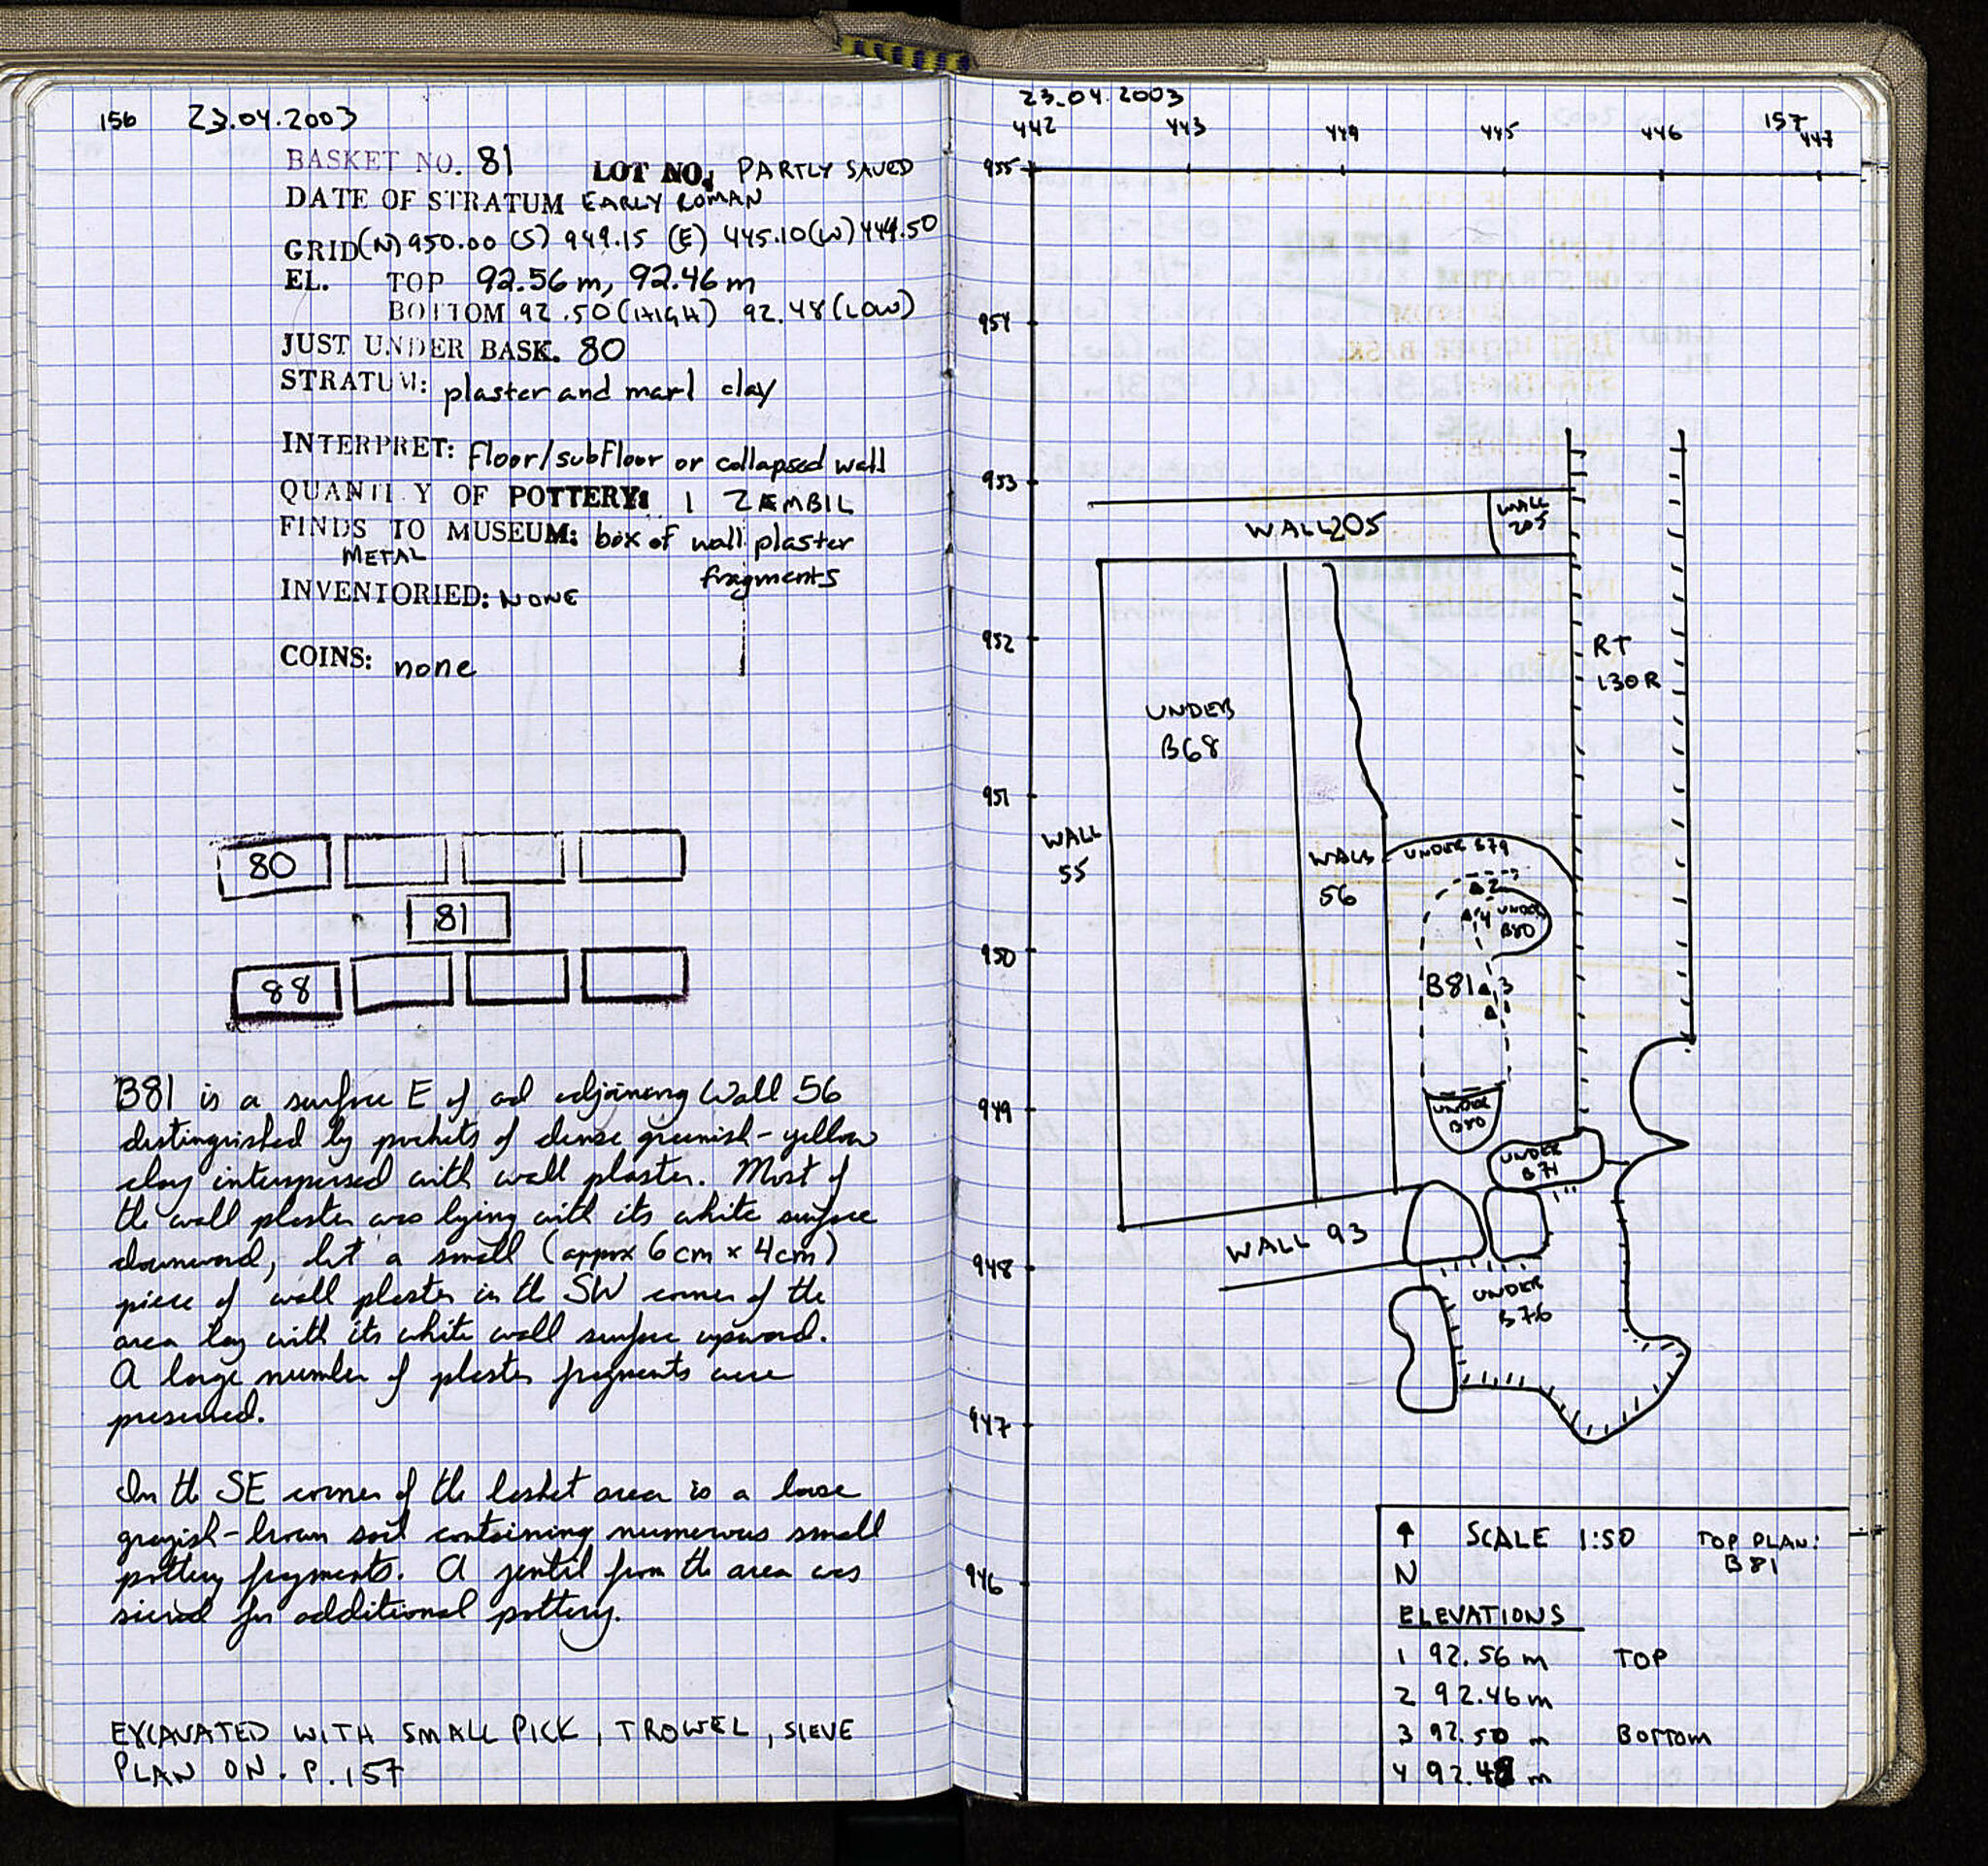 156 23.04.2003
BASKET NO. 81 LOT NO. PARTLY SAVED
DATE OF STRATUM EARLY ROMAN
GRID (N) 950.00 (S) 949.15 (E) 445.10 (W) 444.50
EL. TOP 92.56 m, 92.46 m
BOTTOM 92.50 (HIGH) 92.48 (LOW)
JUST UNDER BASK. 80
STRATUM: plaster and marl clay
INTERPRET: floor/subfloor or collapsed wall
QUANTITY OF POTTERY: 1 ZEMBIL
FINDS TO MUSEUM: box of wall plaster
METAL fragments
INVENTORIED: NONE
COINS: none
80
81
88
B81 is a surface E of and adjoining Wall 56
distinguished by pockets of dense greenish-yellow
clay interspersed with wall plaster. Most of
the wall plaster was lying with its white surface
downward, but a small (approx 6 cm x 4cm)
piece of wall plaster in the SW corner of the
area lay with its white wall surface upward.
A large number of plaster fragments were
preserved.
In the SE corner of the basket area is a loose
greyish-brown soil containing numerous small
pottery fragments. A zembil from the area was
sieved for additional pottery.
EXCAVATED WITH SMALL PICK, TROWEL, SIEVE
PLAN ON. P. 157
23.04.2003
157
442 443 444 445 446 447
955
954
953
WALL 205
WALL
205
952
RT
130R
UNDER
B68
951
WALL
55
WALL
56
UNDER B79
2
4
UNDER
B80
950
B81 3
949
UNDER
B80
UNDER
B71
WALL 93
948
UNDER
B76
947
946
N SCALE 1:50 TOP PLAN:
B81
ELEVATIONS
1 92.56 m TOP
2 92.46 m
3 92.50 m BOTTOM
4 92.48 m